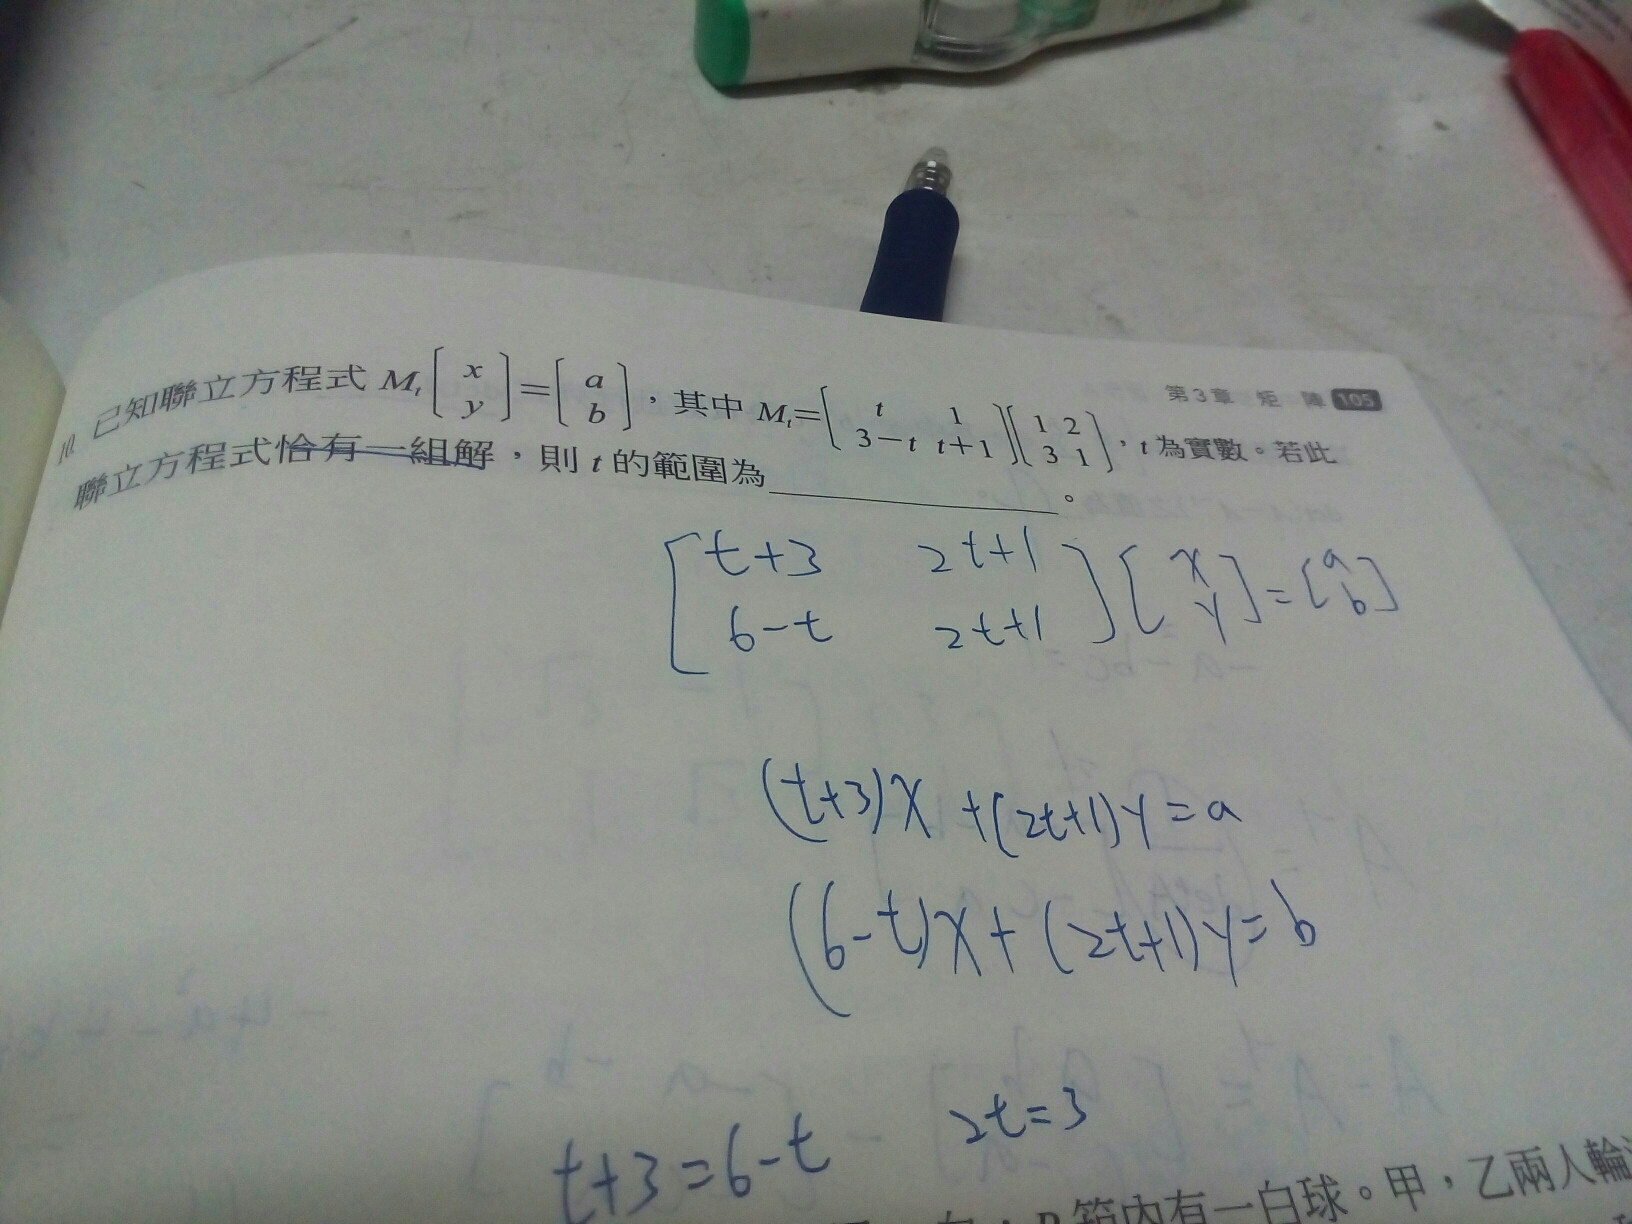 第3章 矩 陣 105
10. 已知聯立方程式 Mₜ[x y]=[a b],其中 Mₜ=[t 1 3-t t+1][1 2 3 1],t 為實數。若此
聯立方程式恰有一組解,則 t 的範圍為________。
[t+3 2t+1 6-t 2t+1][x y]=[a b]
(t+3)x+(2t+1)y=a
(6-t)x+(2t+1)y=b
t+3=6-t 2t=3
箱內有一白球。甲,乙兩人輪